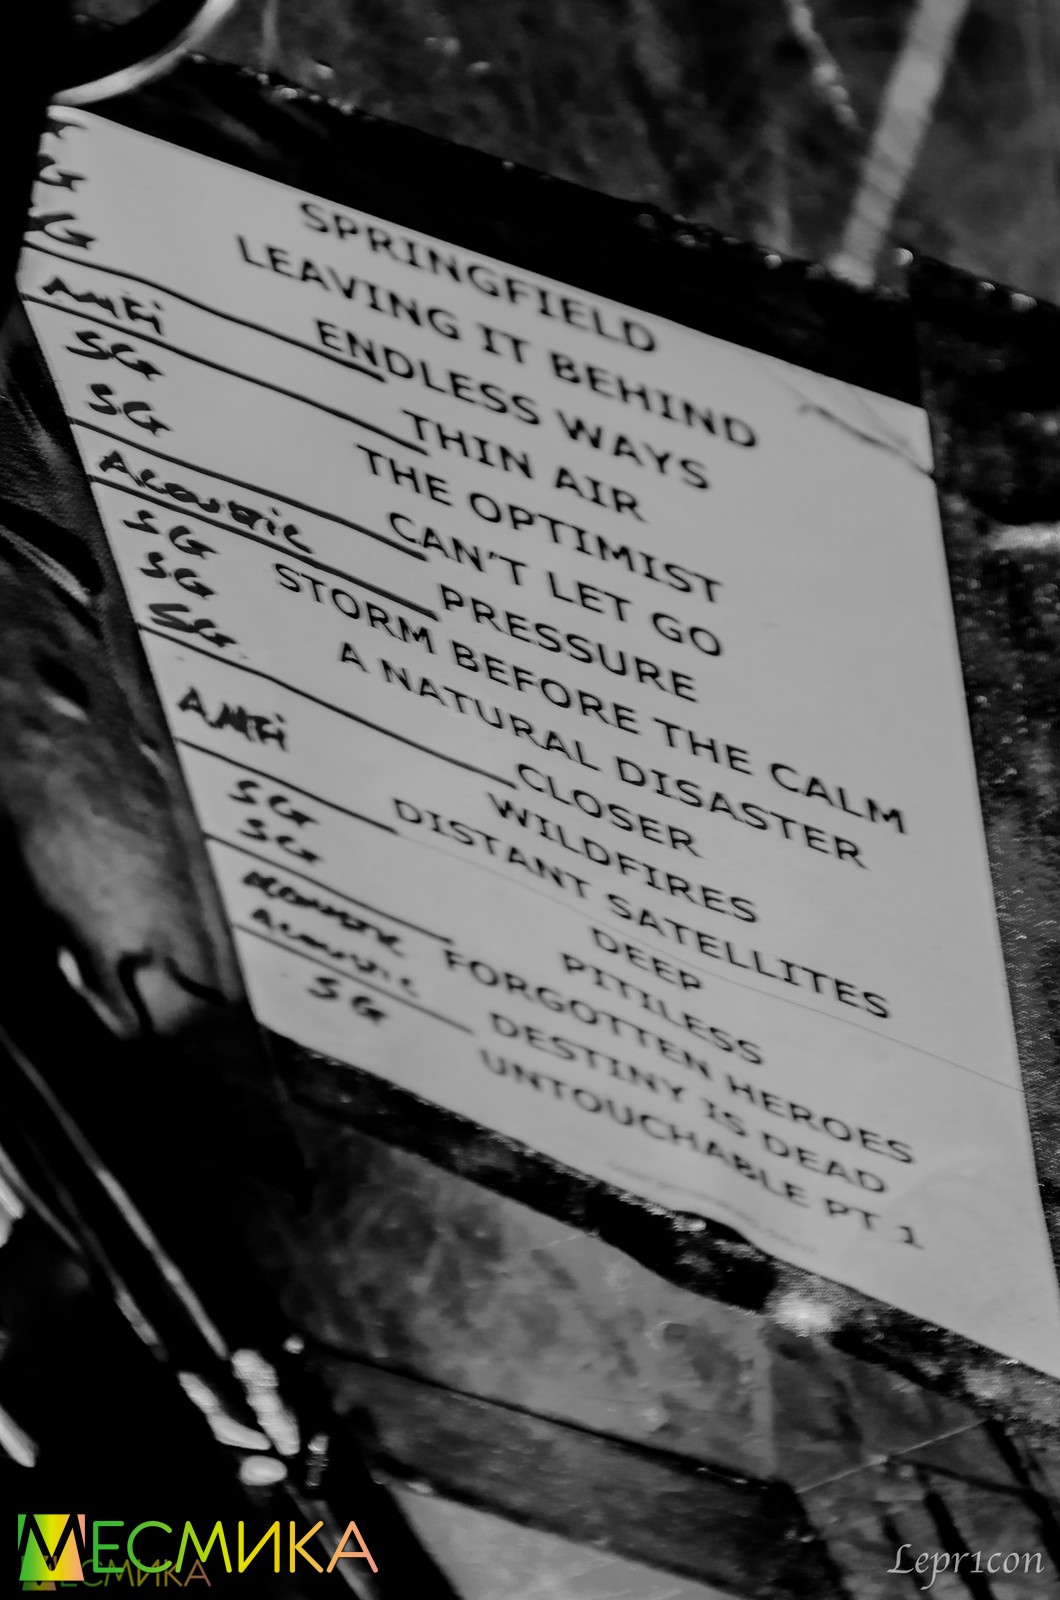 G
G
SPRINGFIELD
LEAVING IT BEHIND
ENDLESS WAYS
THIN AIR
THE OPTIMIST
CAN'T LET GO
PRESSURE
STORM BEFORE THE CALM
A NATURAL DISASTER
CLOSER
WILDFIRES
DISTANT SATELLITES
DEEP
PITILESS
FORGOTTEN HEROES
DESTINY IS DEAD
UNTOUCHABLE PT 1
SG
SG
Acoustic
SG
SG
SG
SG
SG
Acoustic
Acoustic
SG
МЕСМИКА
МЕСМИКА
Lepr1con